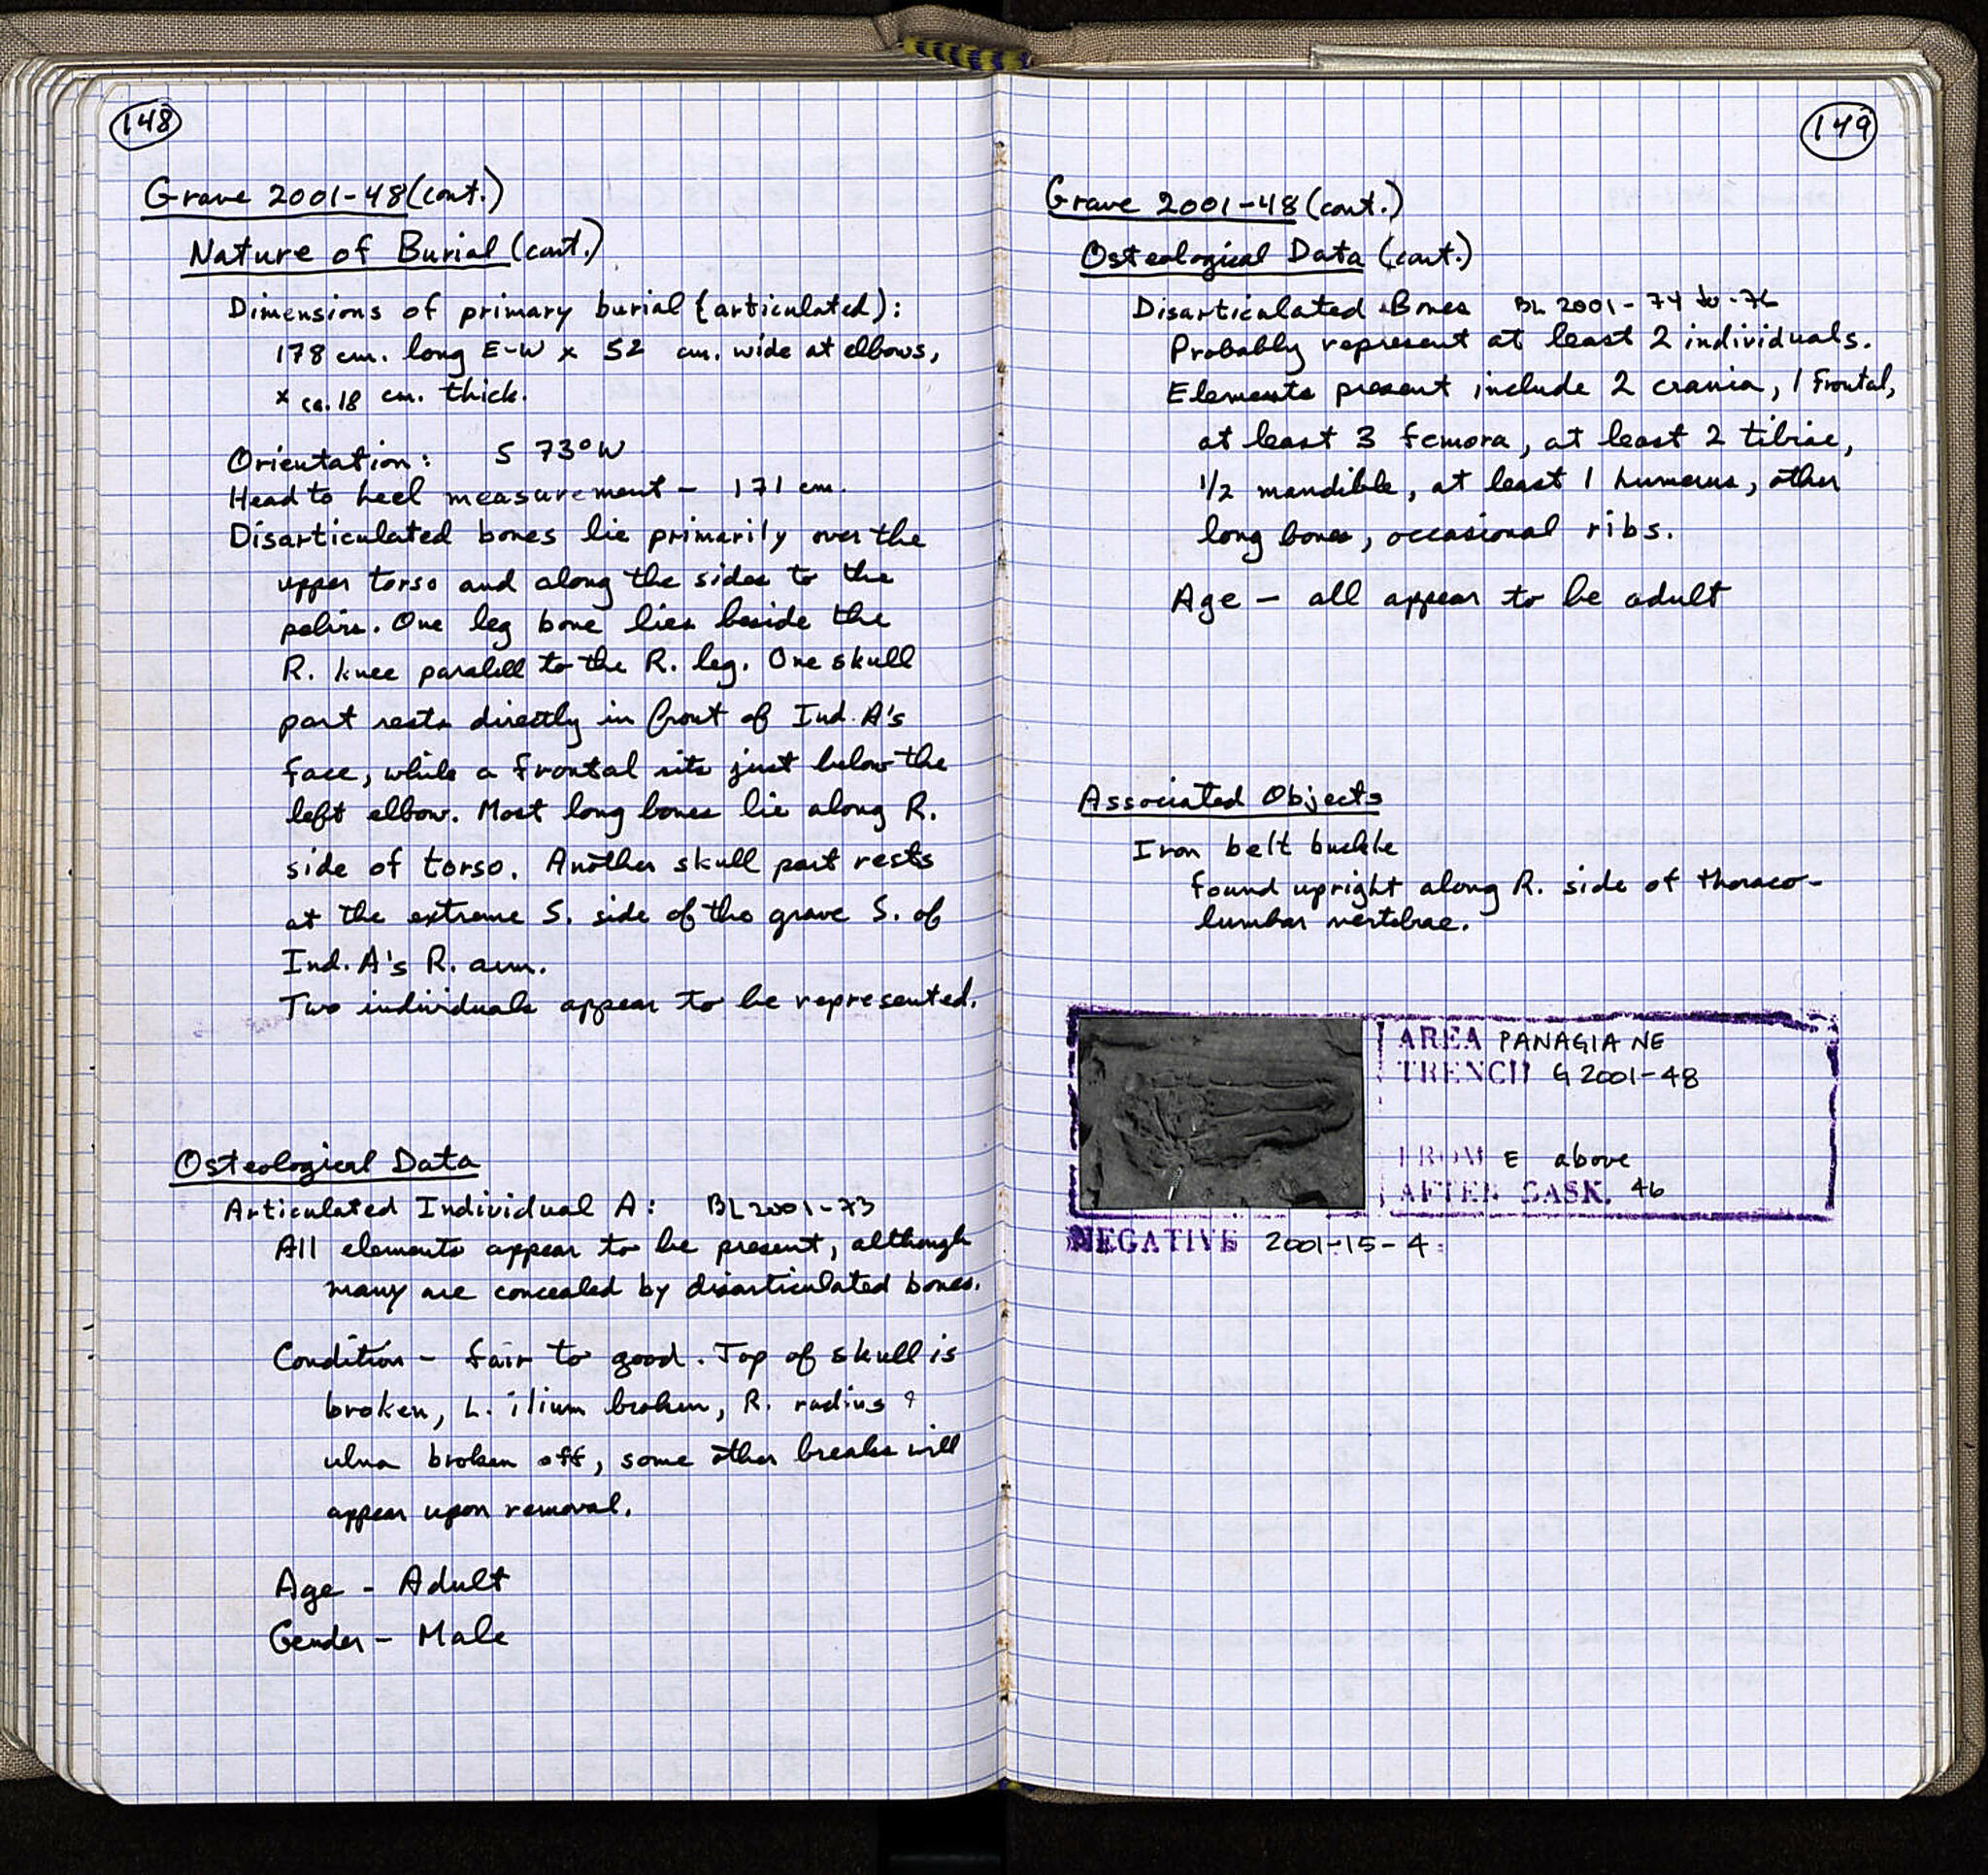 148
Grave 2001-48 (cont.)
Nature of Burial (cont.)
Dimensions of primary burial (articulated):
178 cm. long E-W x 52 cm. wide at elbows,
x ca. 18 cm. thick.
Orientation: S 73° W
Head to heel measurement - 171 cm.
Disarticulated bones lie primarily over the
upper torso and along the sides to the
pelvis. One leg bone lies beside the
R. knee paralell to the R. leg. One skull
part rests directly in front of Ind. A's
face, while a frontal sits just below the
left elbow. Most long bones lie along R.
side of torso. Another skull part rests
at the extreme S. side of the grave S. of
Ind. A's R. arm.
Two individuals appear to be represented.
Osteological Data
Articulated Individual A: BL 2001-73
All elements appear to be present, although
many are concealed by disarticulated bones.
Condition - fair to good. Top of skull is
broken, L. ilium broken, R. radius &
ulna broken off, some other breaks will
appear upon removal.
Age - Adult
Gender - Male
149
Grave 2001-48 (cont.)
Osteological Data (cont.)
Disarticulated Bones BL 2001-74 to -76
Probably represent at least 2 individuals.
Elements present include 2 crania, 1 frontal,
at least 3 femora, at least 2 tibiae,
1/2 mandible, at least 1 humerus, other
long bones, occasional ribs.
Age - all appear to be adult
Associated Objects
Iron belt buckle
found upright along R. side of thoraco-
lumbar vertebrae.
AREA PANAGIA NE
TRENCH G 2001-48
FROM E above
AFTER BASK. 46
NEGATIVE 2001-15-4